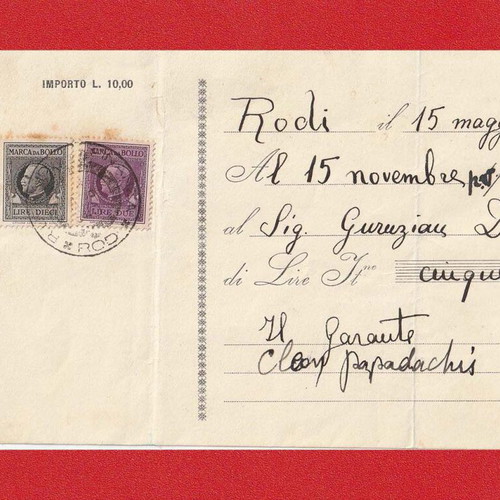 IMPORTO L. 10,00
MARCA DA BOLLO
LIRE DIECI
MARCA DA BOLLO
LIRE DUE
RODI
Rodi il 15 magg
Al 15 novembre p.v.
al Sig. Guruzian D
di Lire It.ne cinqu
Il Garante
Cleon Papadachis